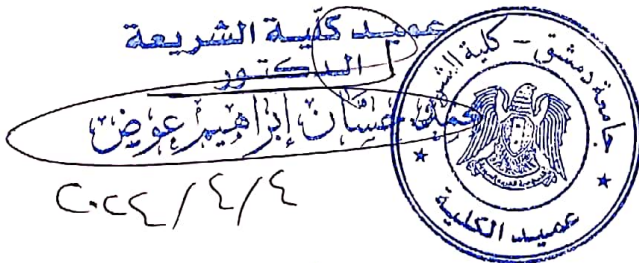 عميد كلّية الشريعة
الدكتور
محمد حسّان إبراهيم عوض
٢٠٢٤/٤/٤
جامعة دمشق - كلية الشريعة
عميد الكلية